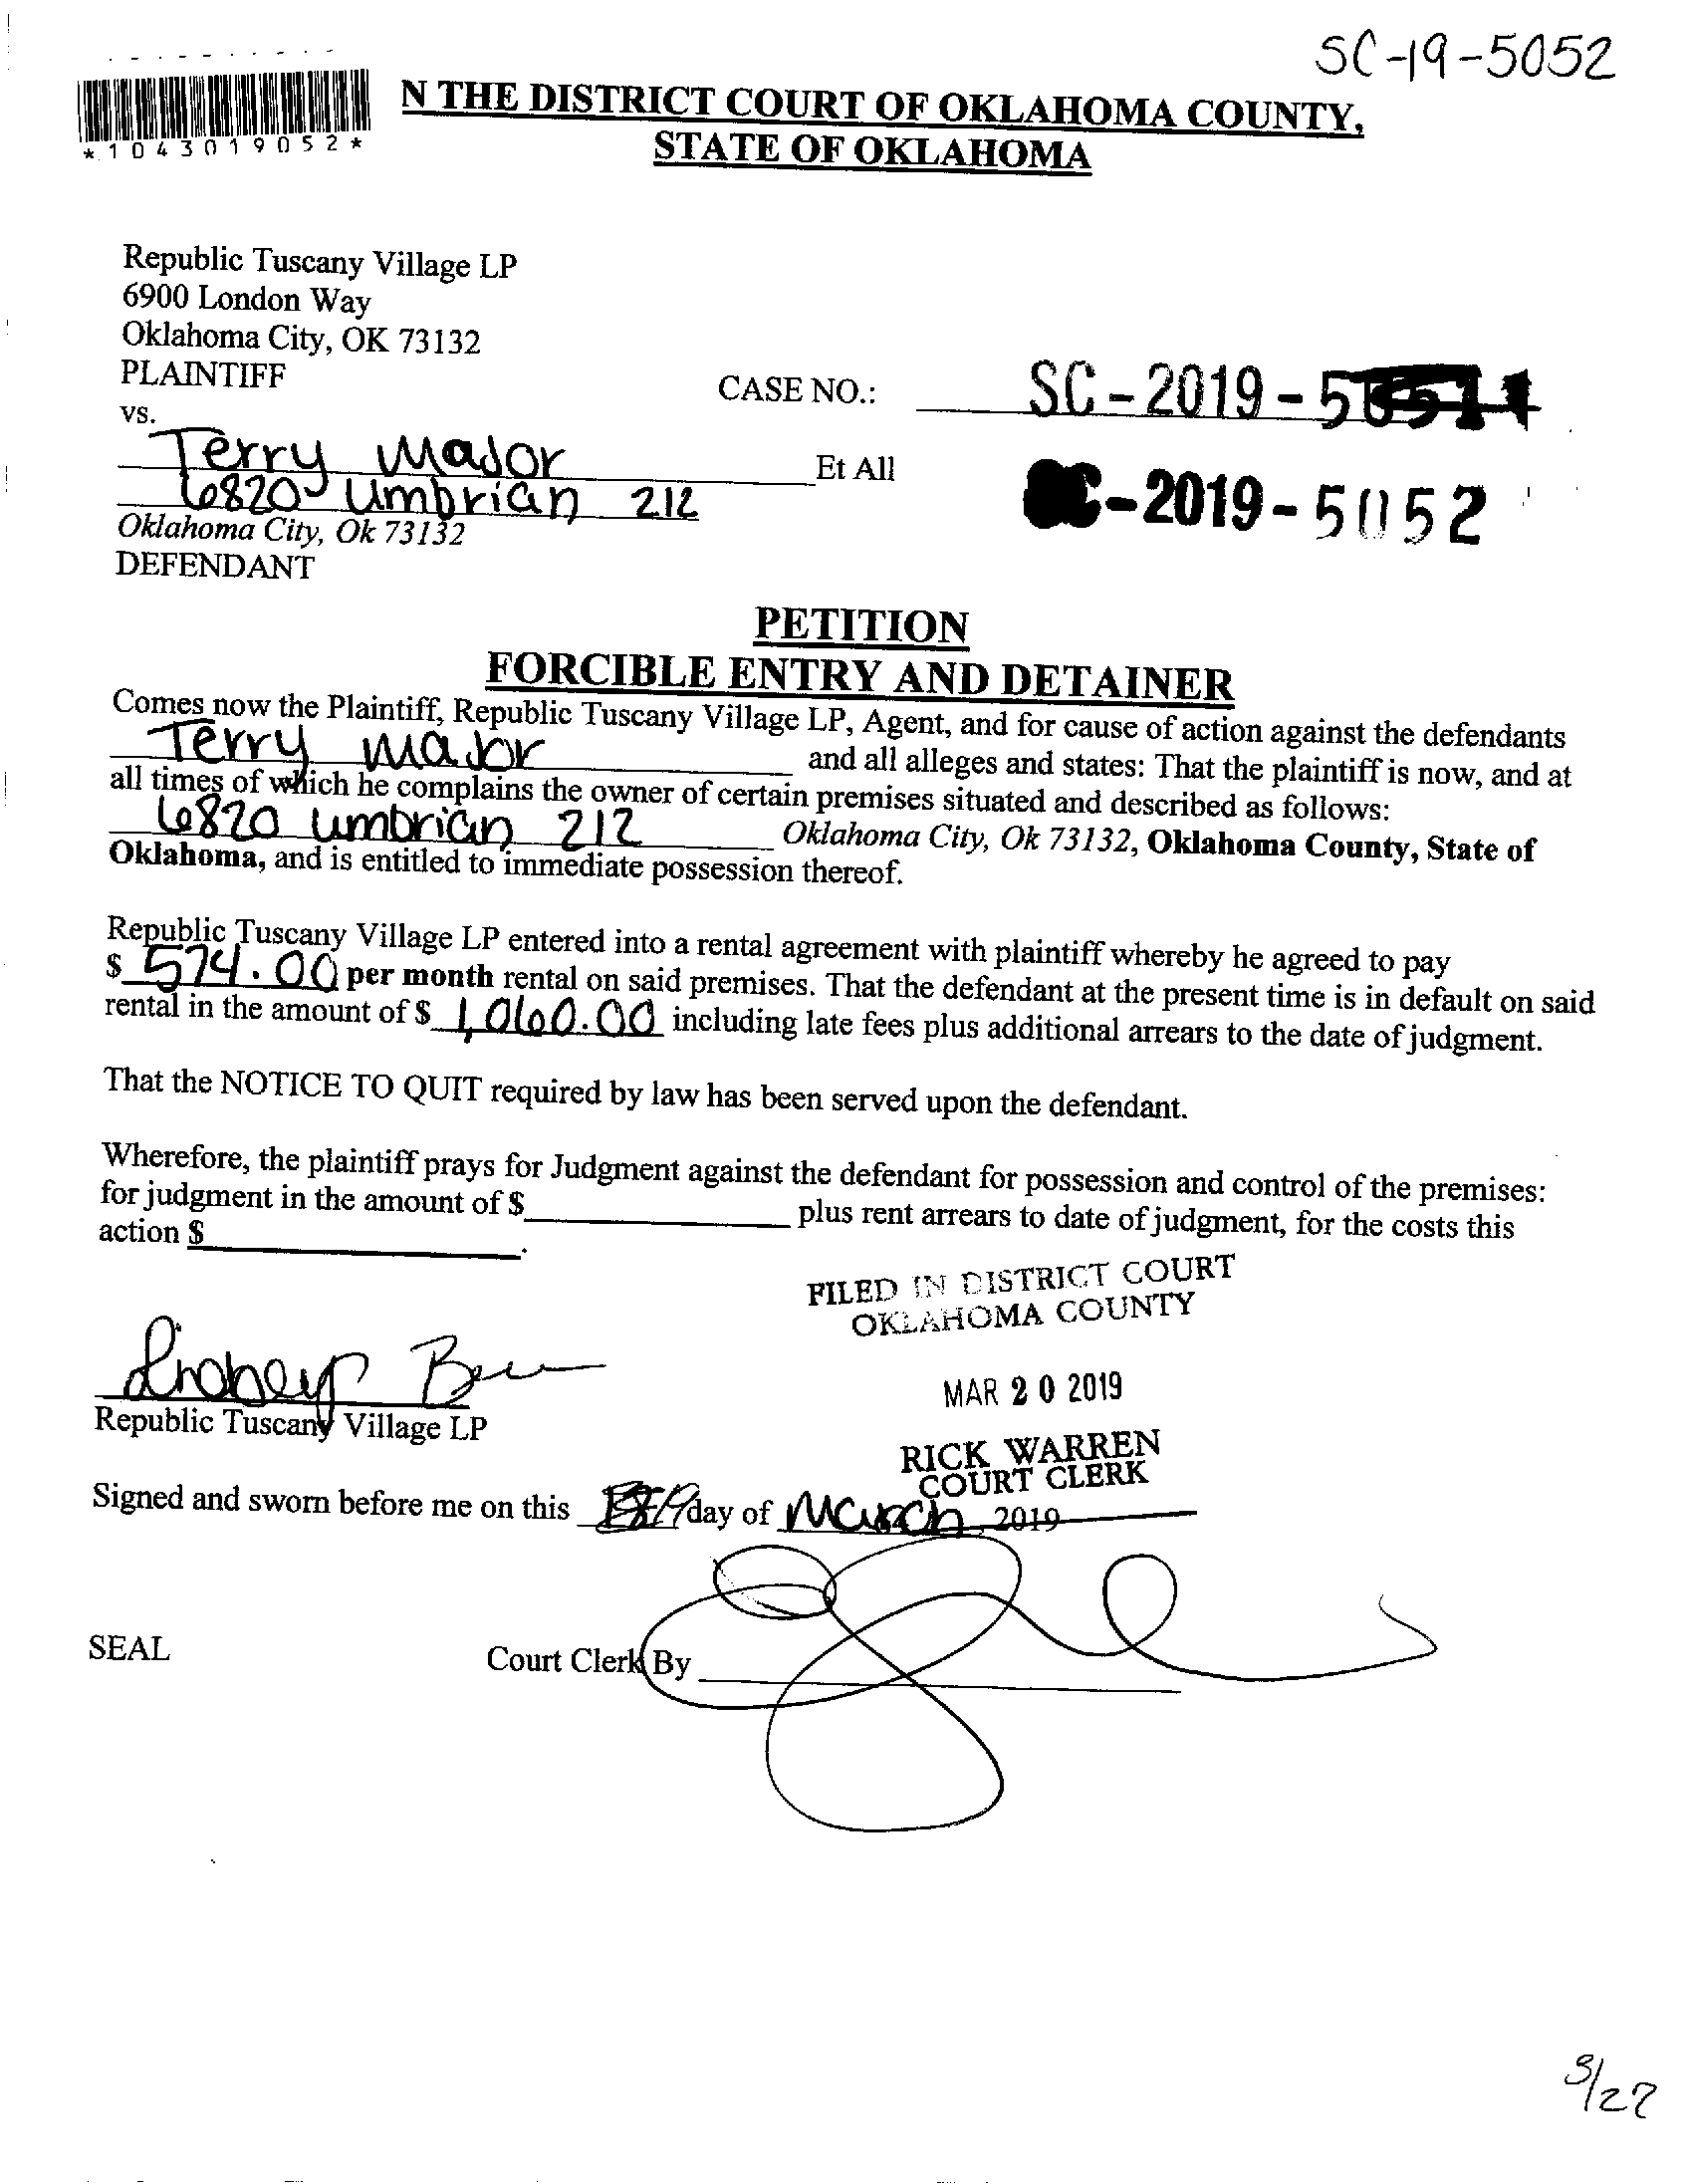 SC-19-5052
*1043019052*
N THE DISTRICT COURT OF OKLAHOMA COUNTY,
STATE OF OKLAHOMA
Republic Tuscany Village LP
6900 London Way
Oklahoma City, OK 73132
PLAINTIFF
CASE NO.: SC-2019-5
vs.
Terry Major Et All
6820 Umbrian 212
C-2019-5052
Oklahoma City, Ok 73132
DEFENDANT
PETITION
FORCIBLE ENTRY AND DETAINER
Comes now the Plaintiff, Republic Tuscany Village LP, Agent, and for cause of action against the defendants
Terry Major and all alleges and states: That the plaintiff is now, and at
all times of which he complains the owner of certain premises situated and described as follows:
6820 Umbrian 212 Oklahoma City, Ok 73132, Oklahoma County, State of
Oklahoma, and is entitled to immediate possession thereof.
Republic Tuscany Village LP entered into a rental agreement with plaintiff whereby he agreed to pay
$ 574.00 per month rental on said premises. That the defendant at the present time is in default on said
rental in the amount of $ 1,060.00 including late fees plus additional arrears to the date of judgment.
That the NOTICE TO QUIT required by law has been served upon the defendant.
Wherefore, the plaintiff prays for Judgment against the defendant for possession and control of the premises:
for judgment in the amount of $ plus rent arrears to date of judgment, for the costs this
action $ .
FILED IN DISTRICT COURT
OKLAHOMA COUNTY
MAR 20 2019
Republic Tuscany Village LP
RICK WARREN
COURT CLERK
Signed and sworn before me on this day of March, 2019
SEAL
Court Clerk By
3/27